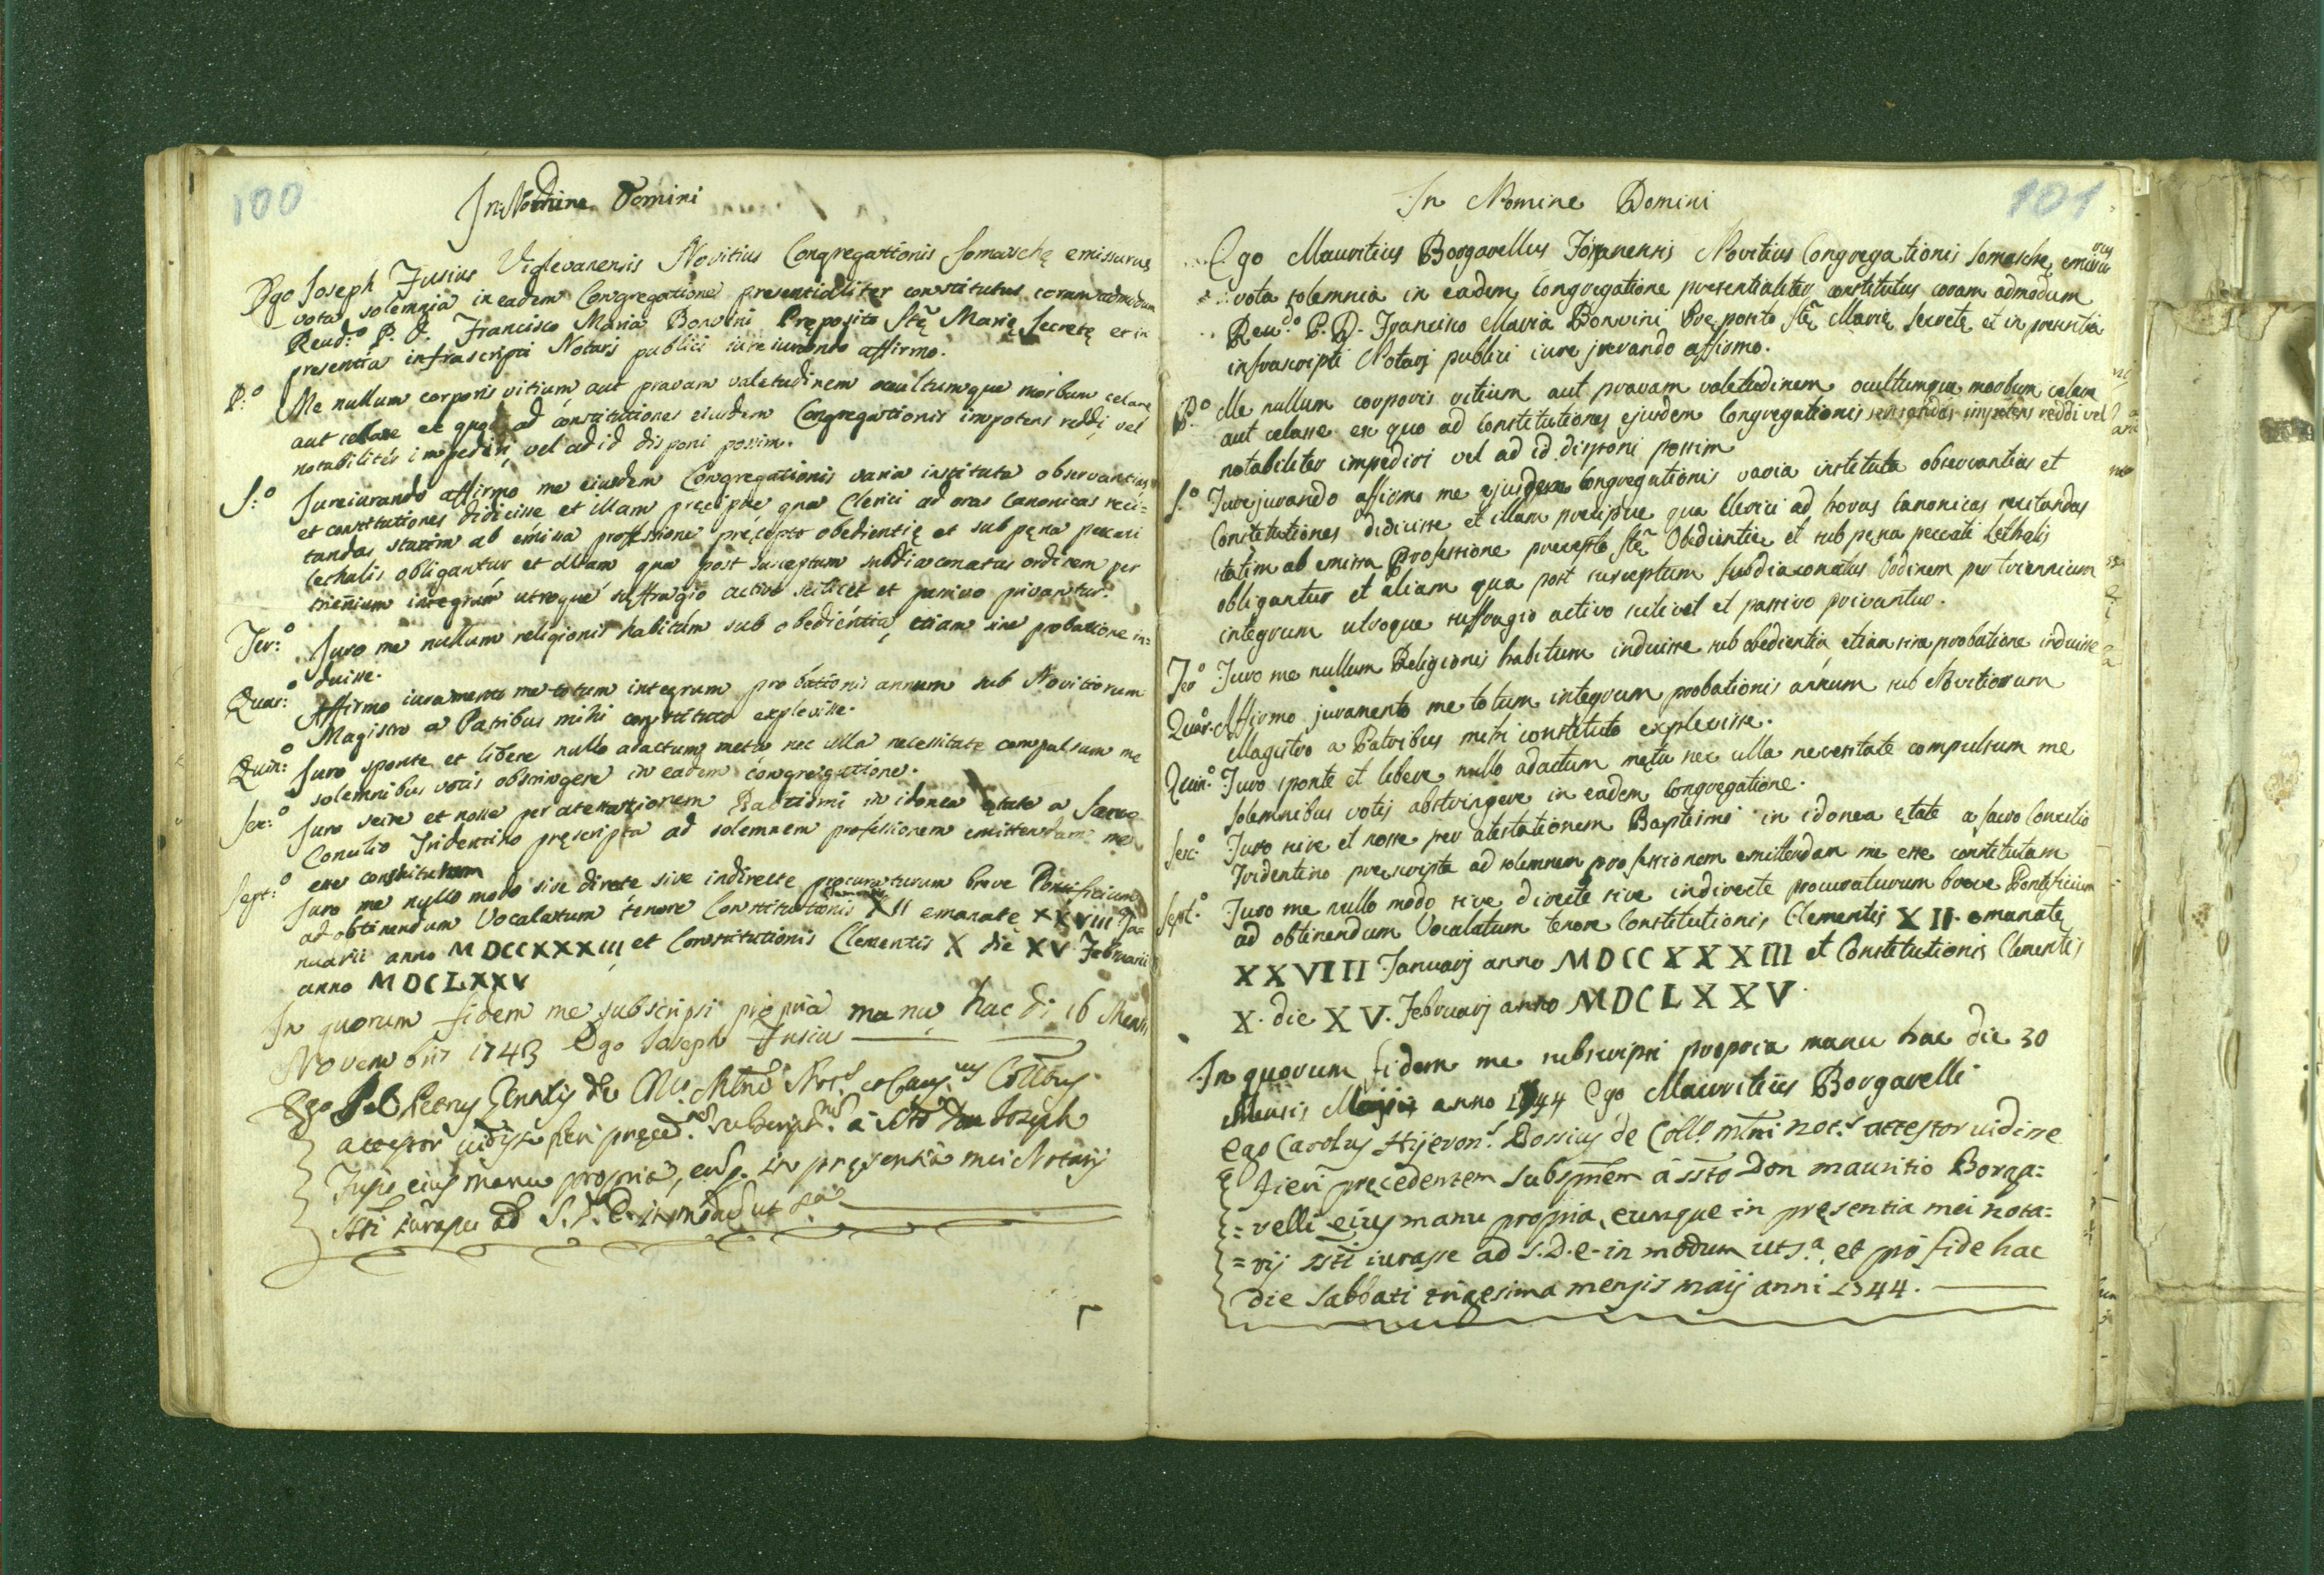 100
In Nomine Domini
Ego Joseph Fusius Viglevanensis Novitius Congregationis Somaschę emissurus
vota solemnia in eadem Congregatione presentialiter constitutus coram admodum
Reud:º P. D. Francisco Maria Bonvini Pręposito Stę Marię Secretę et in
presentia infrascripti Notarii publici iureiurando affirmo.
P:º Me nullum corporis vitium aut pravam valetudinem ocultumque morbum celare
aut celasse ex quo ad constitutiones eiusdem Congregationis impotens reddi, vel
notabiliter impediri, vel ad id disponi possim.
S:º Jureiurando affirmo me eiusdem Congregationis varia instituta observantias
et constitutiones didicisse et illam pręcipue qua Clerici ad oras Canonicas reci-
tandas statim ab emissa professione pręcepto obedientię et sub pęna peccati
lethalis obligantur et aliam qua post susceptum subdiaconatus ordinem per
triennium integrum utroque suffragio activo scilicet et passivo privantur.
Ter:º Juro me nullum religionis habitum sub obedientia, etiam sine probatione in=
duisse.
Quar:º Affirmo iuramento me totum integrum probationis annum sub Novitiorum
Magistro a Patribus mihi constituto explevisse.
Quin:º Juro sponte et libere nullo adactum metu nec ulla necessitate compulsum me
solemnibus votis obstringere in eadem congregatione.
Sex:º Juro scire et nosse per atestationem Baptismi in idonea ętate a Sacro
Concilio Tridentino pręscripta ad solemnem professionem emittendam me
esse constitutum
Sept:º Juro me nullo modo sive directe sive indirecte procuraturum breve Pontificium
ad obtinendum Vocalatum tenore Constitutionis Clementis XII emanatę XXVIII Ja=
nuarii anno MDCCXXXIII et Constitutionis Clementis X die XV Februarii
anno MDCLXXV
In quorum fidem me subscripsi propria manu hac di 16 Mensis
Novembris 1743 Ego Joseph Fusius
Ego Petrus de
attestor vidisse fieri pręced. subscript. à Don Joseph
Fusio eius manu propria, in pręsentia mei Notarij
iurasse ad S. D. E. in modum ut
101
In Nomine Domini
Ego Mauritius Borgarellus Novitius Congregationis Somaschę emissurus
vota solemnia in eadem Congregatione presentialiter constitutus coram admodum
Reudº P. D. Francisco Maria Bonvini Preposito Stę Marię Secretę et in presentia
infrascripti Notarj publici iure jurando affirmo.
P.º Me nullum corporis vitium aut pravam valetudinem ocultumque morbum celare
aut celasse ex quo ad Constitutiones ejusdem Congregationis servandas impotens reddi vel
notabiliter impediri vel ad id disponi possim
S.º Jurejurando affirmo me ejusdem Congregationis varia instituta observantias et
Constitutiones didicisse et illam precipue qua Clerici ad horas Canonicas recitandas
statim ab emissa Professione precepto stę Obedientię et sub pęna peccati Lethalis
obligantur et aliam qua post susceptum Subdiaconatus Ordinem per triennium
integrum utroque suffragio activo scilicet et passivo privantur.
Terº Juro me nullum Religionis habitum induisse sub obedientia, etiam sine probatione induisse
Quar.º Affirmo juramento me totum integrum probationis annum sub Novitiorum
Magistro a Patribus mihi constituto explevisse.
Quin.º Juro sponte et libere nullo adactum metu nec ulla necessitate compulsum me
solemnibus votis abstringere in eadem Congregatione.
Sex.º Juro scire et nosse per atestationem Baptismi in idonea ętate a sacro Concilio
Tridentino prescripta ad solemnem professionem emittendam me esse constitutam
Sept.º Juro me nullo modo sive directe sive indirecte procuraturum breve Pontificium
ad obtinendum Vocalatum tenore Constitutionis Clementis XII. emanatę
XXVIII Januarj anno MDCCXXXIII et Constitutionis Clementis
X. die XV. Februarj anno MDCLXXV.
In quorum fidem me subscripsi propria manu hac die 30
Mensis Maii anno 1744 Ego Mauritius Borgarelli
Ego Carolus Hijeron.s Bossius de Coll.º mtni not.s attestor vidisse
fieri pręcedentem subspnem à ssto Don mauritio Borga=
=relli eius manu propria, eumque in pręsentia mei nota=
=rij ssti iurasse ad S.D.E. in modum uts.a, et prò fide hac
die Sabbati trigesima mensis maij anni 1744.